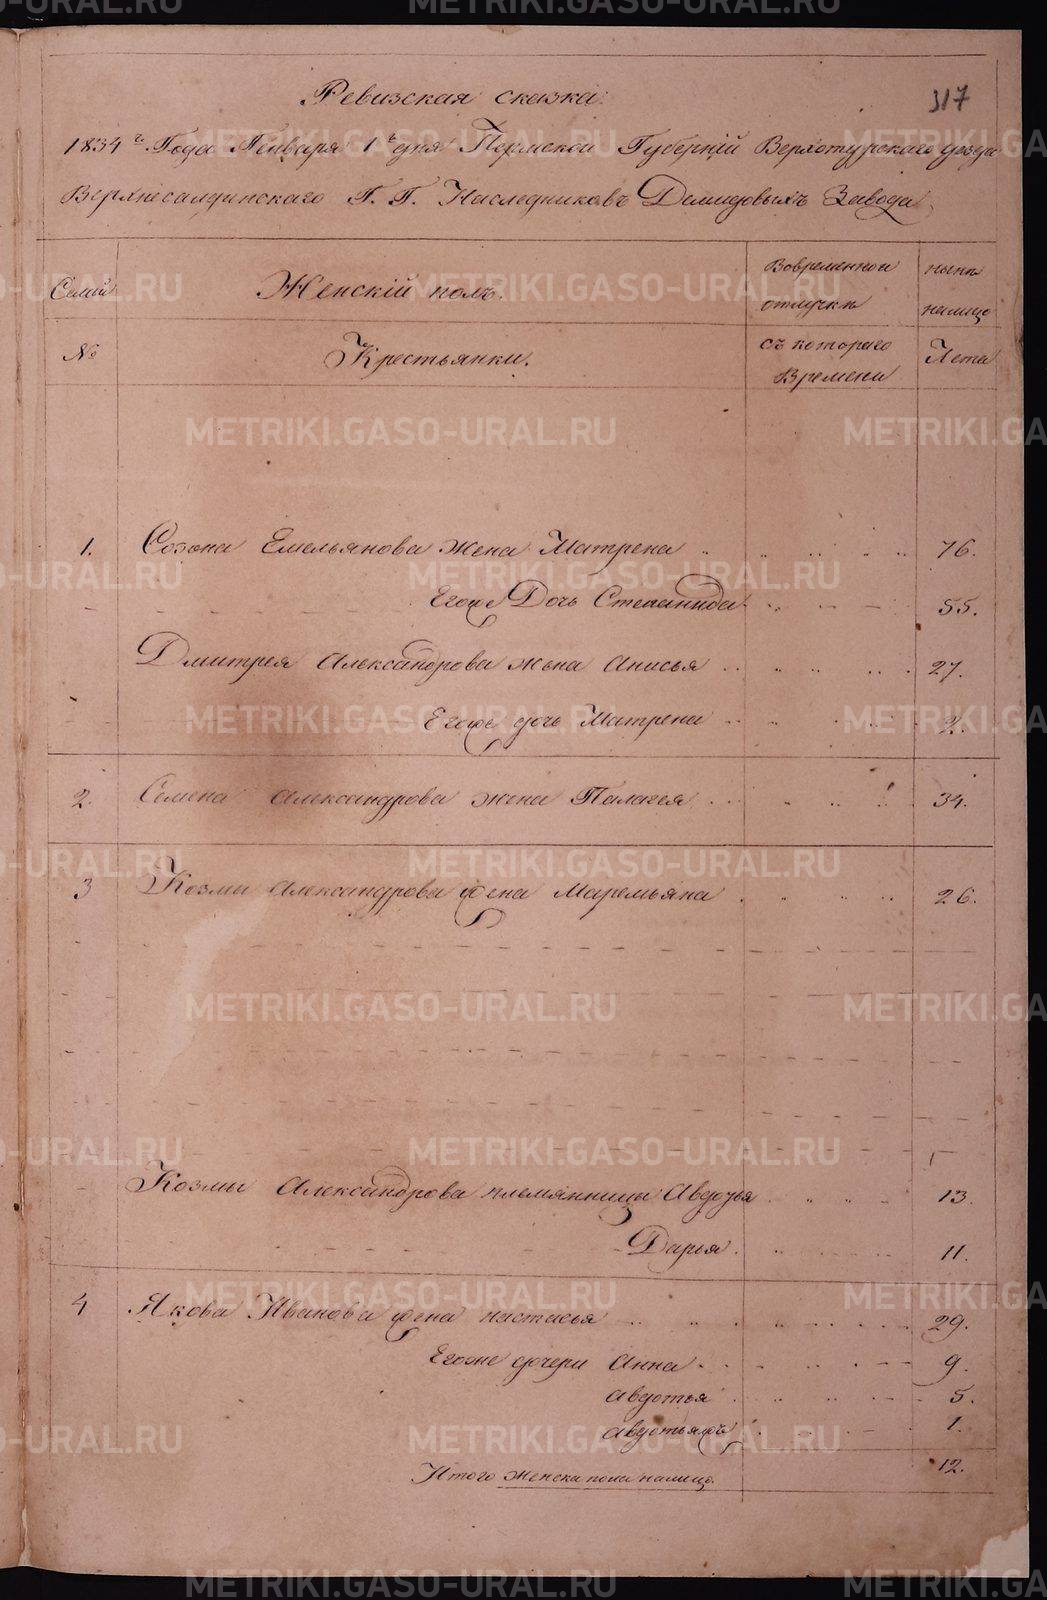 Ревизская сказка.
317
1834го Года Генваря 1го дня Пермской Губерніи Верхотурского уезда
Верхнесалдинскаго Г. Г. Наследниковъ Демидовыхъ Завода
Семьи
Женскій полъ.
Вовременной отлучки
ныне налицо
№
Крестьянки.
Съ котораго Времени
Лета
1. Созона Емельянова жена Матрена 76.
Егоже Дочь Степанида 55.
Дмитрея Александрова жена Анисья 27.
Егоже дочь Матрена 2.
2. Семена Александрова жена Палагея 34.
3 Козмы Александрова жена Маремьяна 26.
Козмы Александрова племянницы Авдотья 13.
Дарья. 11.
4 Якова Иванова жена настасья 29.
Егоже дочери Анна 9.
авдотья 5.
авдотьяжъ 1.
Итого женска пола налицо. 12.
METRIKI.GASO-URAL.RU